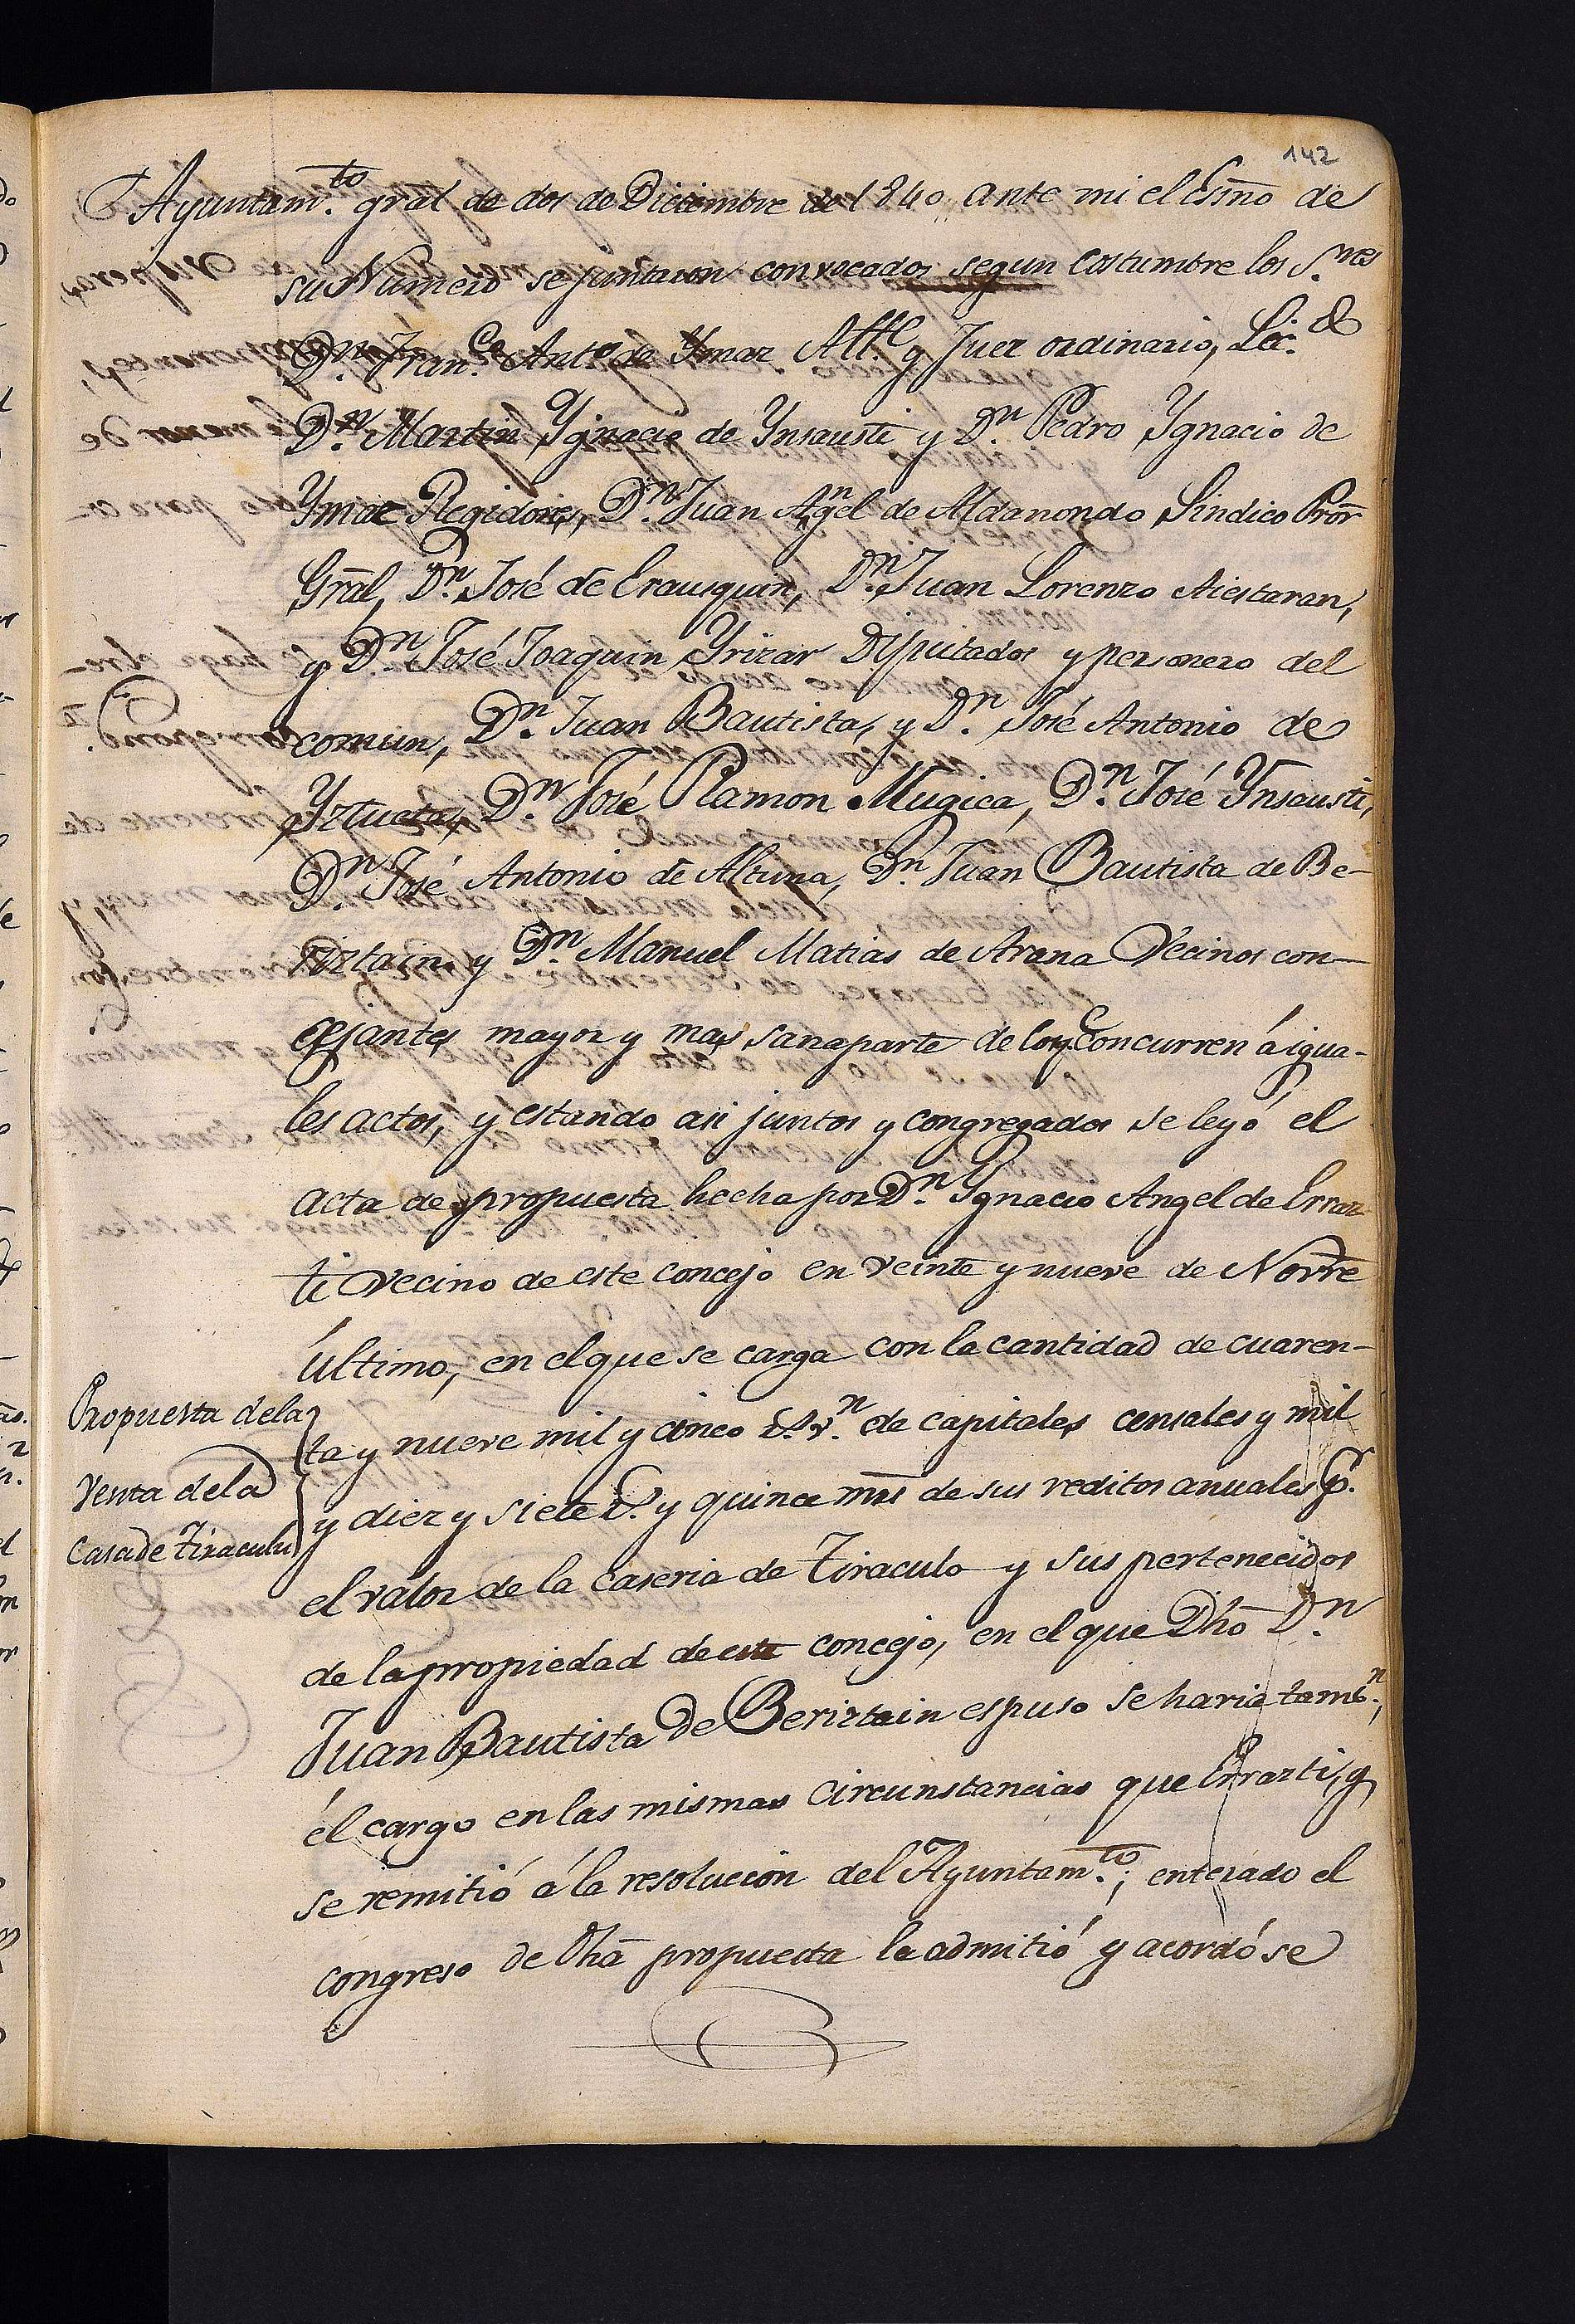 142
Ayuntam.to gral de dos de Diciembre de 1840 ante mi el Essno de
su Numero se juntaron convocados segun costumbre los S.nes
D.n Fran.co Anto de Ymaz Alle y Juez ordinario, Lic.do
D.n Martin Ygnacio de Ynsausti y D.n Pedro Ygnacio de
Ymaz Regidores, D.n Juan Angel de Aldanondo Sindico Pror
Gral, D.n José de Erausquin, D.n Juan Lorenzo Aiestaran,
y D.n José Joaquin Yrizar Diputados y personero del
comun, D.n Juan Bautista, y D.n José Antonio de
Yztueta, D.n José Ramon Mugica, D.n José Ynsausti,
D.n José Antonio de Altuna, D.n Juan Bautista de Be-
riztain y D.n Manuel Matias de Arana Vecinos con-
cejantes mayor y mas sana parte de los q.e concurren á igua-
les actos, y estando asi juntos y congregados se leyó el
acta de propuesta hecha por D.n Ygnacio Angel de Erraz
ti vecino de este concejo en veinte y nueve de Novre
último, en el que se carga con la cantidad de cuaren-
Propuesta de la
venta de la
Casa de Tiraculu
ta y nueve mil y cinco r.s v.n de capitales censales y mil
y diez y siete r.s y quince mrs de sus reditos anuales p.r
el valor de la caseria de Tiraculo y sus pertenecidos
de la propiedad de este concejo, en el que Dho D.n
Juan Bautista de Beriztain espuso se haria tamb.n,
él cargo en las mismas circunstancias que Errazti, y
se remitió á la resolucion del Ayuntam.to; enterado el
congreso de dha propuesta la admitió y acordó se